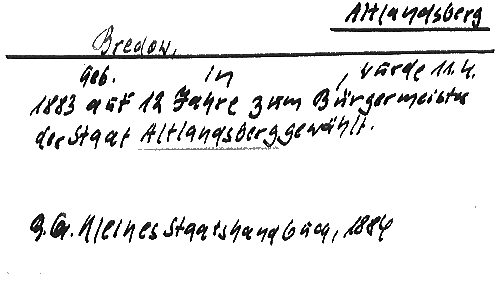 Altlandsberg
Bredow,
Geb. in , wurde 11.4.
1883 auf 12 Jahre zum Bürgermeister
der Stadt Altlandsberg gewählt.
Kleines Staatshandbuch, 1884